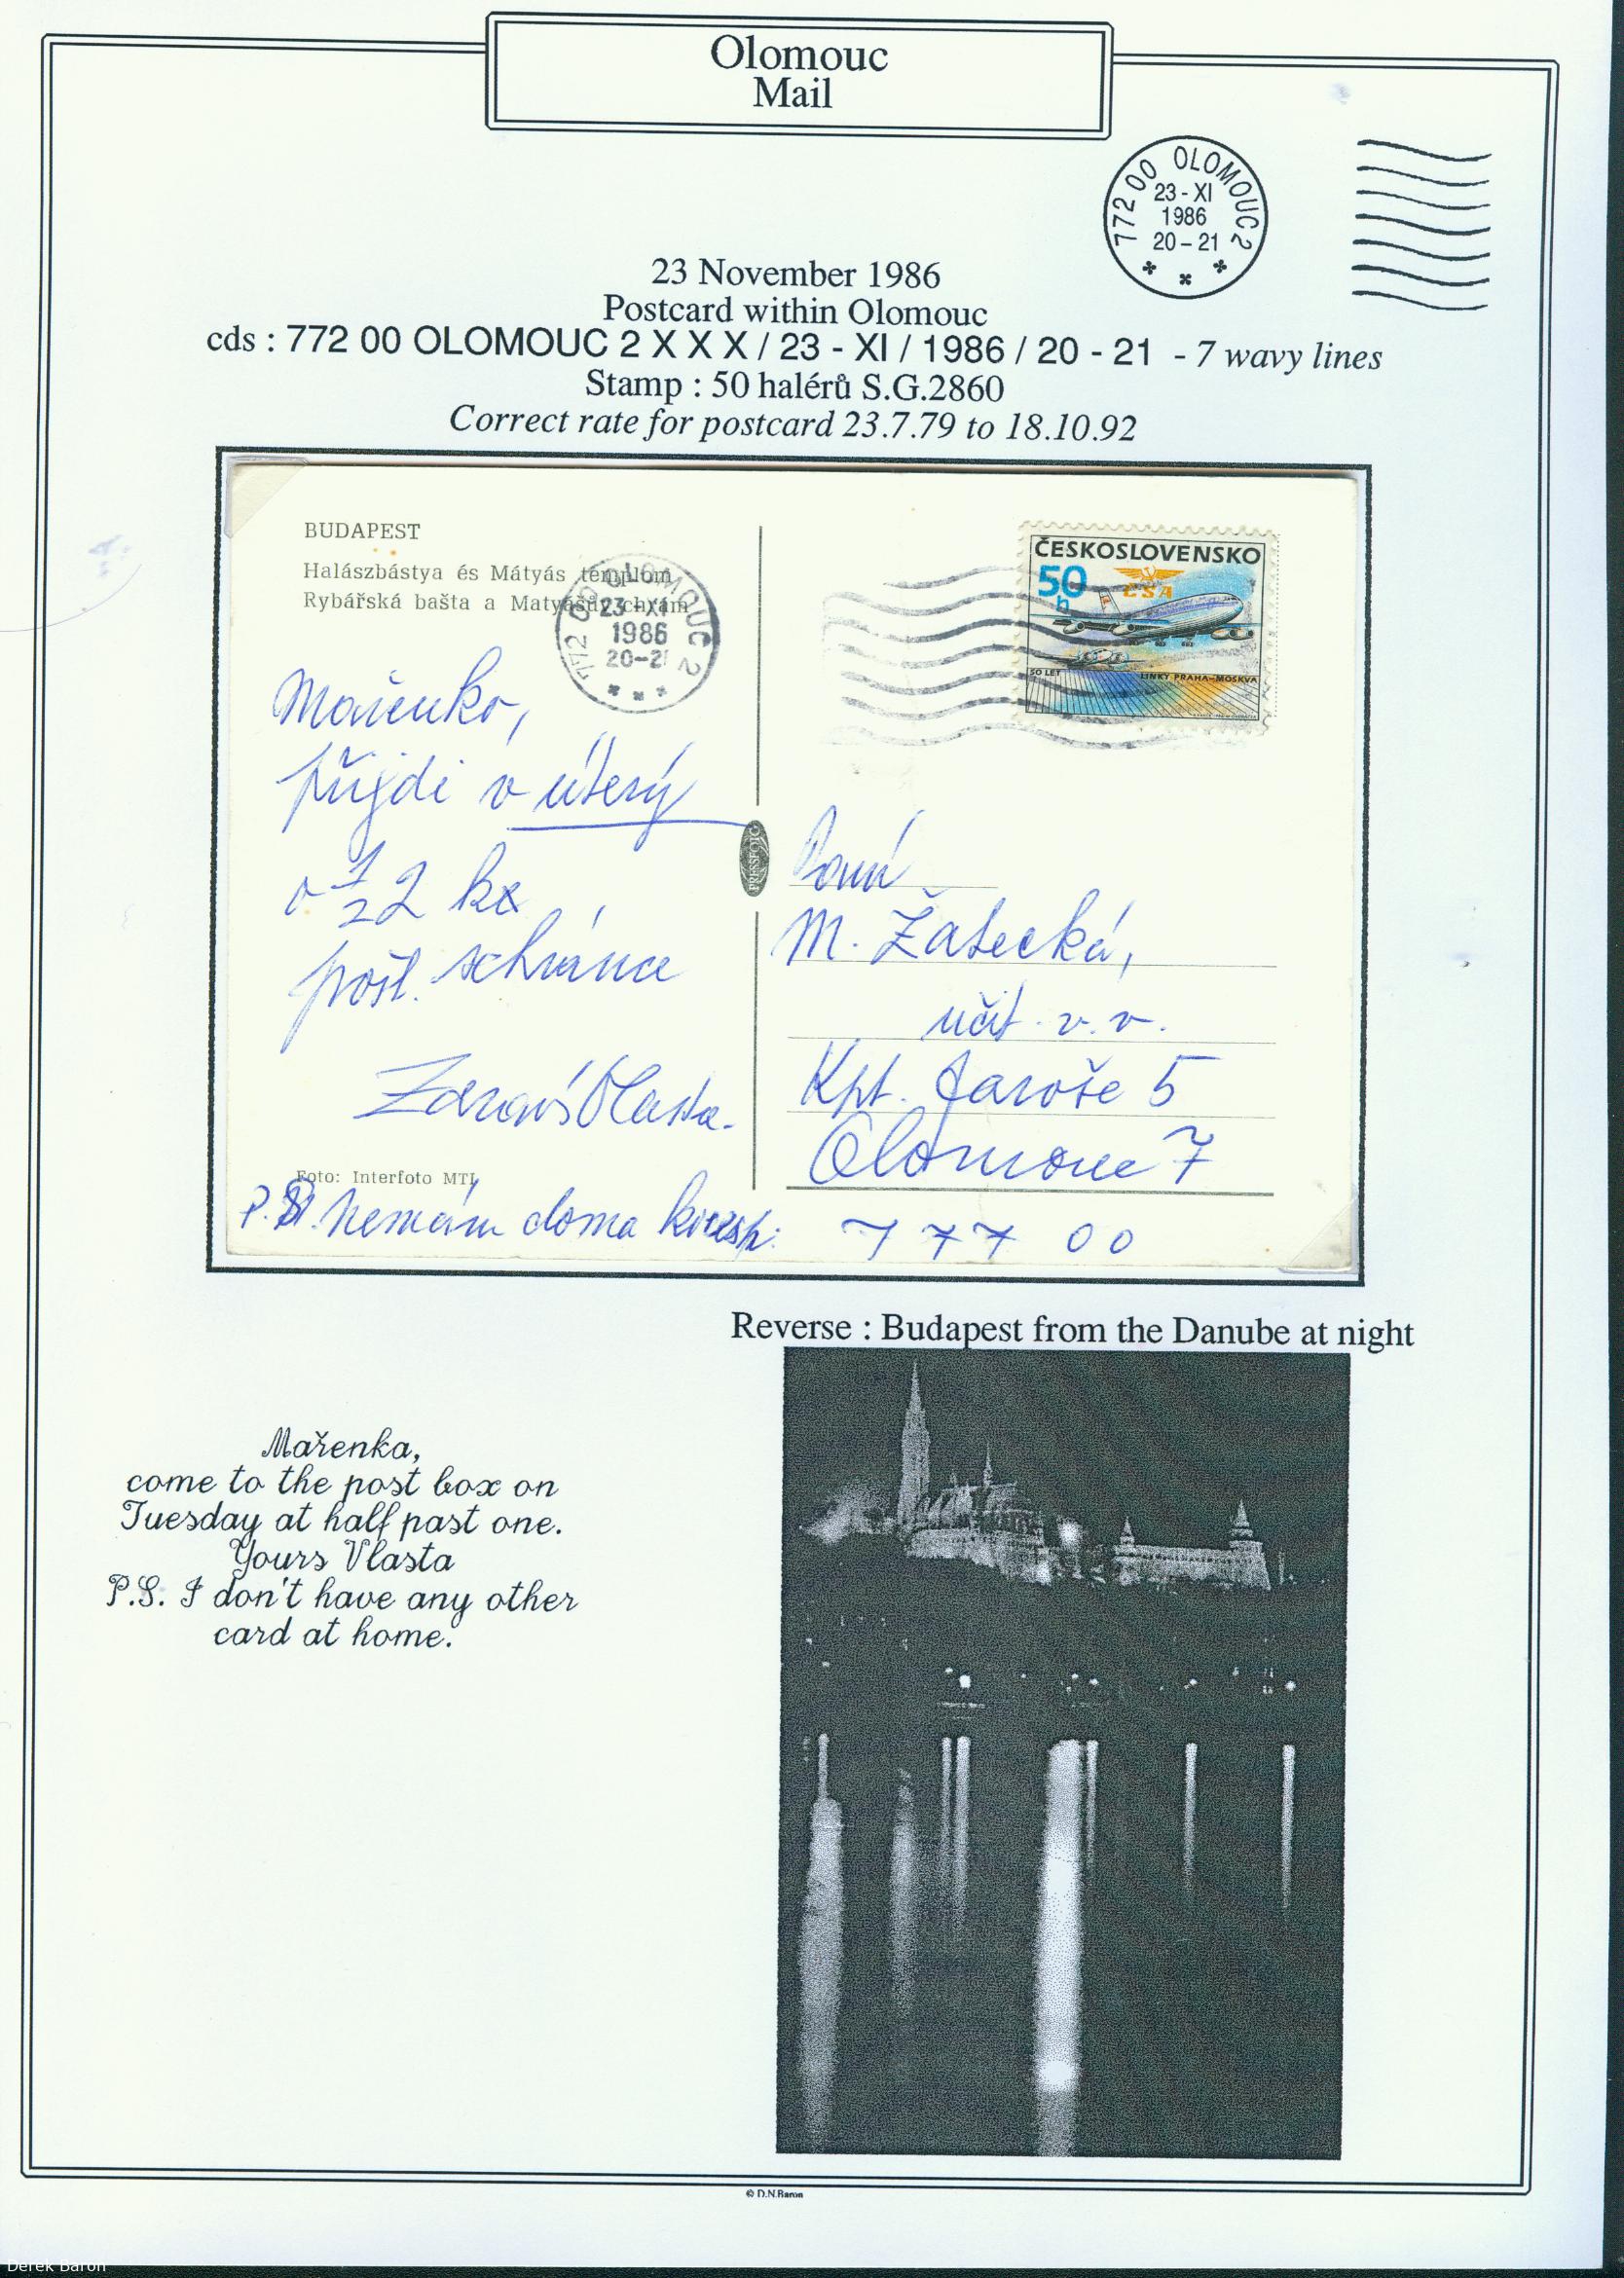 Olomouc
Mail
772 00 OLOMOUC 2
23 - XI
1986
20 - 21
23 November 1986
Postcard within Olomouc
cds : 772 00 OLOMOUC 2 X X X / 23 - XI / 1986 / 20 - 21 - 7 wavy lines
Stamp : 50 halérů S.G.2860
Correct rate for postcard 23.7.79 to 18.10.92
BUDAPEST
Halászbástya és Mátyás templom
Rybářská bašta a Matyášův chrám
772 00 OLOMOUC 2
23-XI
1986
20-21
ČESKOSLOVENSKO
50
h
ČSA
50 LET LINKY PRAHA-MOSKVA
Mařenko,
přijdi v úterý
o 1/2 2 ke
pošt. schránce
Zdraví Vlasta.
Foto: Interfoto MTI
P.S. Nemám doma koresp.
PRESSFOTO
Paní
M. Žatecká,
učit. v. v.
Kpt. Jaroše 5
Olomouc 7
777 00
Reverse : Budapest from the Danube at night
Mařenka,
come to the post box on
Tuesday at half past one.
Yours Vlasta
P.S. I don't have any other
card at home.
© D.N.Baron
Derek Baron